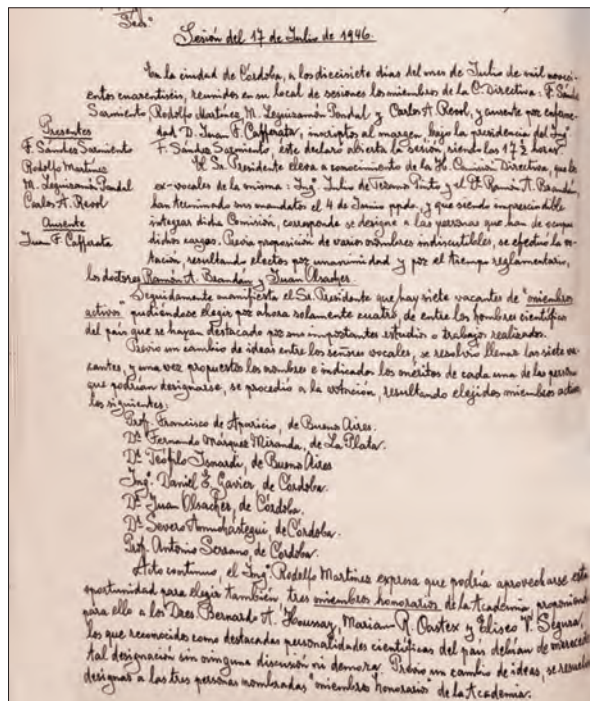 Secr.
Sesión del 17 de Julio de 1946.
En la ciudad de Córdoba, a los diecisiete días del mes de Julio de mil noveci-
entos cuarentiseis, reunidos en su local de sesiones los miembros de la C. Directiva: F. Sánchez
Sarmiento, Rodolfo Martínez, M. Leguizamón Pondal y Carlos A. Revol, y ausente por enferme-
dad D. Juan F. Cafferata, inscriptos al margen, bajo la presidencia del Ingº
F. Sánchez Sarmiento, éste declaró abierta la sesión, siendo las 17 ½ horas.
Presentes
F. Sánchez Sarmiento
Rodolfo Martínez
M. Leguizamón Pondal
Carlos A. Revol
Ausente
Juan F. Cafferata
El Sr. Presidente eleva a conocimiento de la H. Comisión Directiva, que los
ex-vocales de la misma: Ingº Julio de Tezanos Pinto y el Dr. Ramón A. Brandán,
han terminado sus mandatos el 4 de Junio ppdo, y que siendo imprescindible
integrar dicha Comisión, corresponde se designe a las personas que han de ocupar
dichos cargos. Previa proposición de varios nombres indiscutibles, se efectúa la vo-
tación, resultando electos por unanimidad y por el tiempo reglamentario,
los doctores Ramón A. Brandán y Juan Olsacher.
Seguidamente manifiesta el Sr. Presidente que hay siete vacantes de "miembros
activos" pudiéndose elegir por ahora solamente cuatro, de entre los hombres científicos
del país que se hayan destacado por sus importantes estudios o trabajos realizados.
Previo un cambio de ideas entre los señores vocales, se resolvió llenar las siete va-
cantes, y una vez propuestos los nombres e indicados los méritos de cada una de las personas
que podrían designarse, se procedió a la votación, resultando elejidos miembros activos
los siguientes:
Prof. Francisco de Aparicio, de Buenos Aires.
Dr. Fernando Márquez Miranda, de La Plata.
Dr. Teófilo Isnardi, de Buenos Aires
Ingº. Daniel E. Gavier, de Córdoba.
Dr. Juan Olsacher, de Córdoba.
Dr. Severo Amuchástegui, de Córdoba.
Prof. Antonio Serrano, de Córdoba.
Acto continuo, el Ingº Rodolfo Martínez expresa que podría aprovecharse esta
oportunidad para elegir también tres miembros honorarios de la Academia, proponiendo
para ello a los Dres. Bernardo A. Houssay, Mariano R. Castex y Eliseo V. Segura,
los que reconocidos como destacadas personalidades científicas del país debían de merecer
tal designación sin ninguna discusión ni demora. Previo un cambio de ideas, se resuelve
designar a las tres personas nombradas "miembros honorarios" de la Academia.